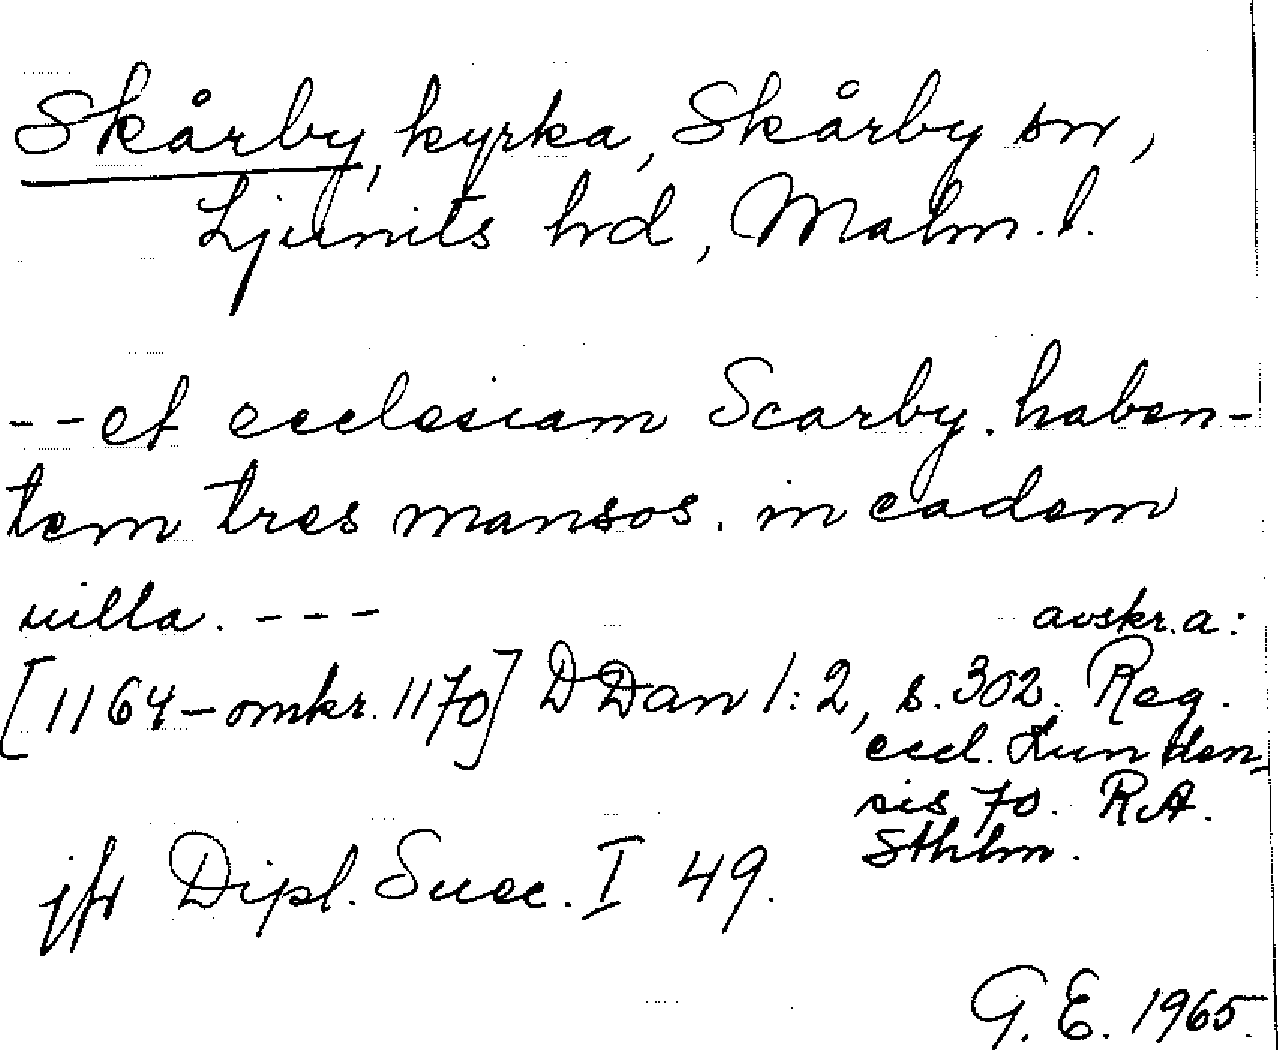 Skårby, kyrka, Skårby sn,
Ljunits hrd, Malm. l.
-- et ecclesiam Scarby. haben-
tem tres mansos. in eadem
uilla. ---
avskr. a:
[1164 – omkr. 1170] DDan 1:2, s. 302. Reg.
eccl. Lunden-
sis 70. RA.
Sthlm.
jfr Dipl. Suec. I 49.
G. E. 1965.